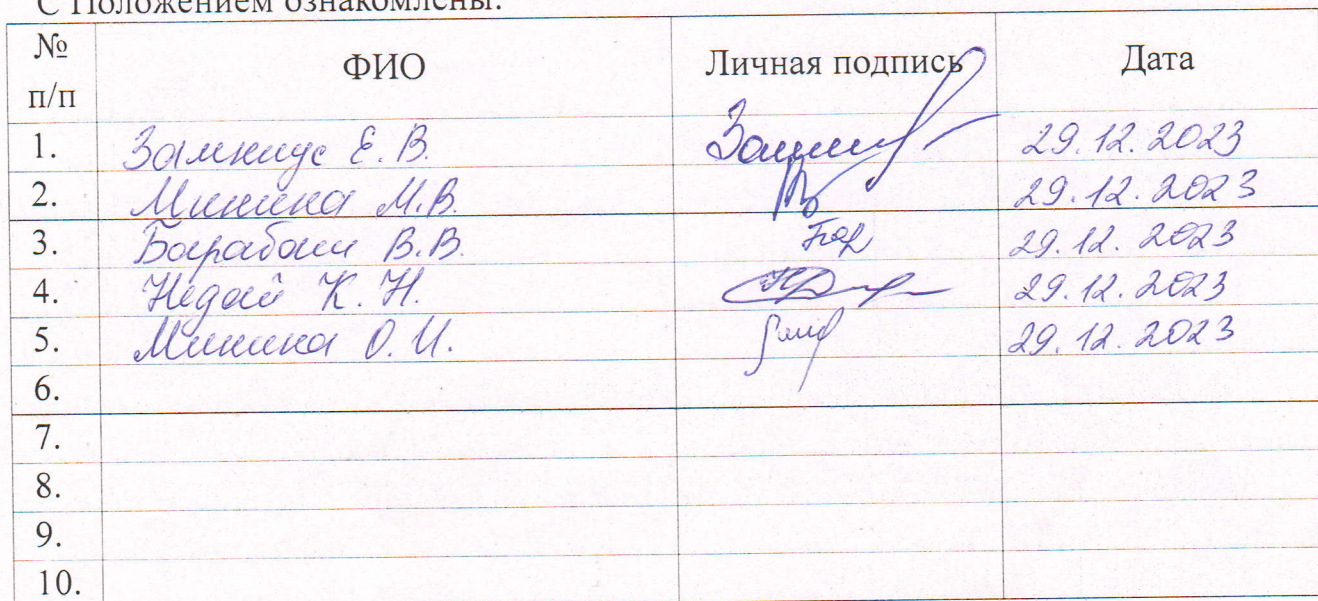 С Положением ознакомлены:
№ п/п ФИО Личная подпись Дата
1. Замниус Е. В. 29.12.2023
2. Минина М.В. 29.12.2023
3. Барабаш В.В. Бар 29.12.2023
4. Недай К. Н. 29.12.2023
5. Минина О. И. 29.12.2023
6.
7.
8.
9.
10.